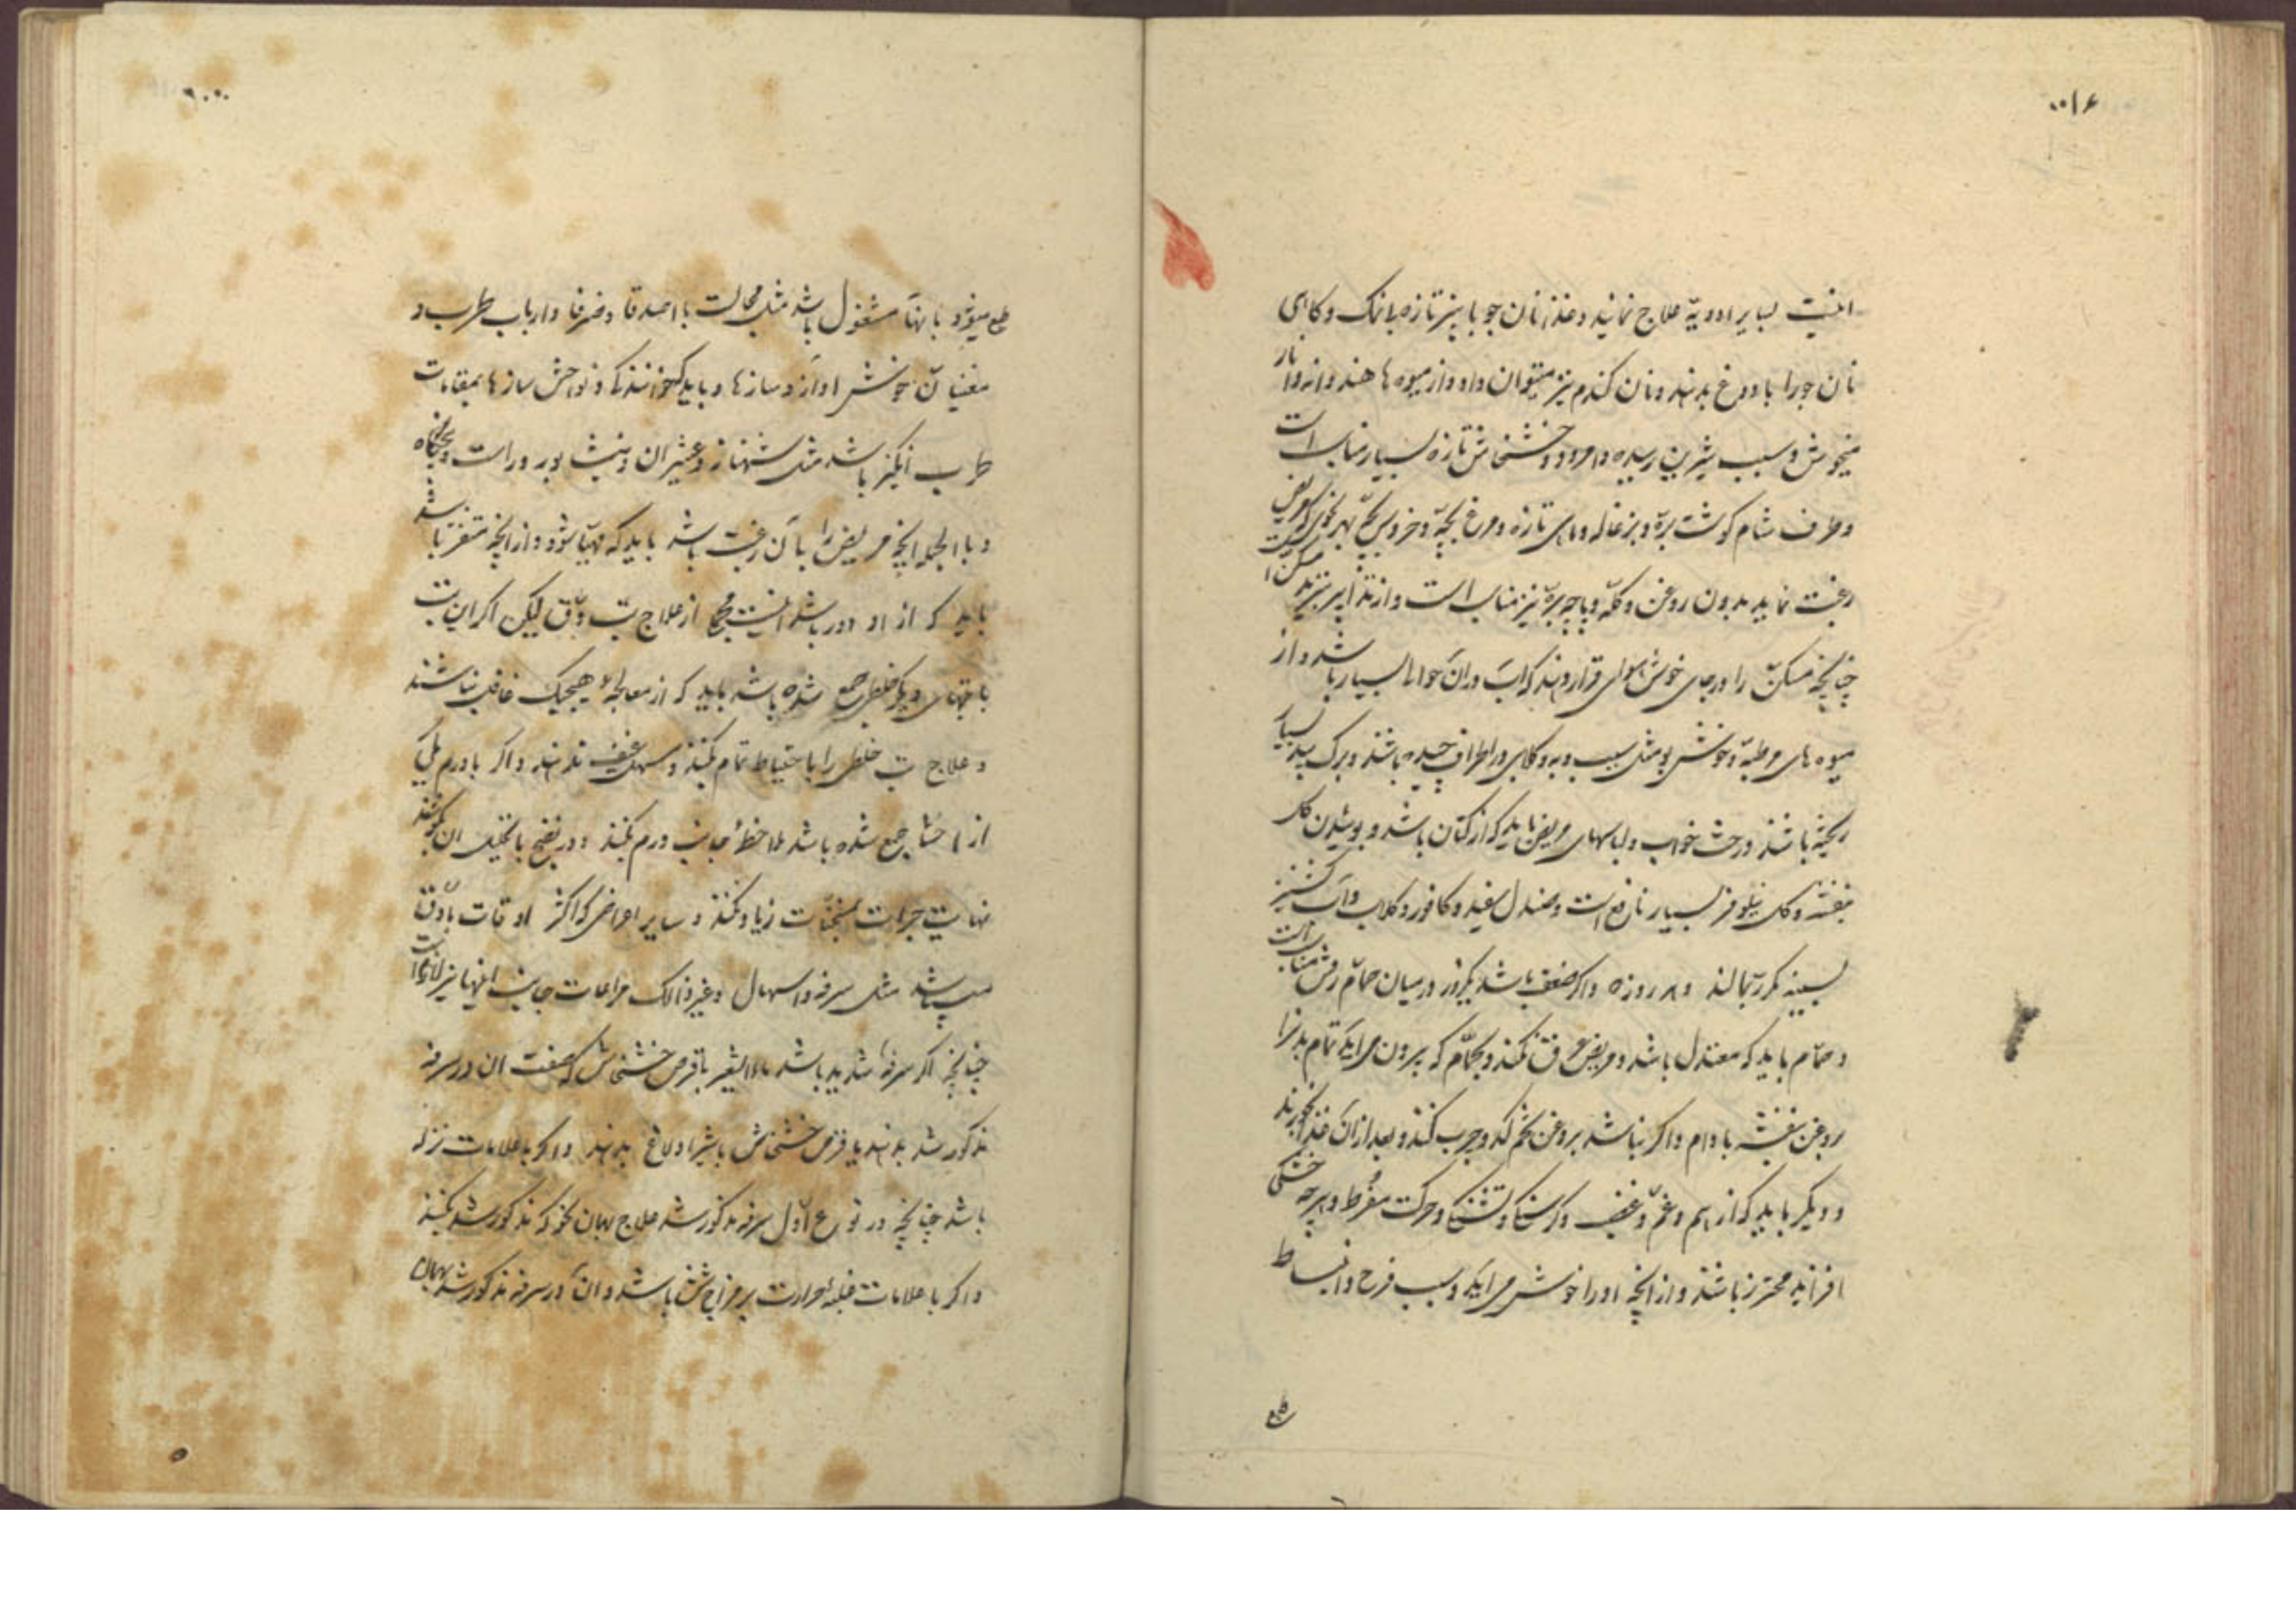 بسایر ادویه علاج نمایند و غذا نان جو با پنیر تازه بانمک و کاهی
نان جو را با دوغ بدهند و نان گندم نیز میتوان داد و از میوه ها هندوانه و انار
میخوش و سیب شیرین رسیده و امرود و خشخاش تازه بسیار مناسب است
و طرف شام کوشت بره و بزغاله و ماهی تازه و مرغ بچه و خروس بچه بهر نحوی که مریض
رغبت نماید بدون روغن و کله و پاچه بره نیز مناسب است و از تدابیر تبرید مسکن است
چنانچه مسکن را در جای خوش هوای قرار دهند که آب در آن حوالی بسیار باشد و از
میوه های مرطبه و خوش بو مثل سیب و به و کلابی در اطراف چیده باشند و برک بید بسیار
ریخته باشند و رخت خواب و لباسهای مریض باید که از کتان باشد و بوئیدن کل
بنفشه و کل نیلوفر بسیار نافع است و صندل سفید و کافور و کلاب و آب کشنیز
بسینه مکرر بمالند و هر روزه و اگر ضعف باشد یکروز در میان حمام رفتن مناسب است
و حمام باید که معتدل باشد و مریض عرق نکند و بحمام که بیرون می آید تمام بدنرا
بروغن بنفشه بادام و اگر نباشد بروغن تخم کدو چرب کنند و بعد از آن غذا بخورند
و دیگر باید که از هم و غم و غضب و گرسنگی و تشنگی و حرکت مفرط و هر چه خشکی
افزاید محترز باشند و از آنچه او را خوش می آید و سبب فرح و انبساط
طبع میشود بآنها مشغول باشد مثل مجالست با اصدقا و ظرفا و ارباب طرب و
مغنیان خوش آواز و سازها و باید که خوانندگی و نواختن سازها بمقامات
طرب انگیز باشد مثل شهناز و عشیران و نیشابور و راست و پنجگاه
و بالجمله آنچه مریض را بآن رغبت باشد باید که مهیا شود و از آنچه متنفر باشد
باید که از او دور باشد اینست مجمع از علاج تب دق لیکن اکر این تب
با تبهای دیگر خلطی جمع شده باشد باید که از معالجه هیچیک غافل نباشند
و علاج تب خلطی را با احتیاط تمام بکنند و مسهل عنیف ندهند و اکر با ورم یکی
از احشا جمع شده باشد ملاحظه جانب ورم بکنند و در نضج یا تحلیل ان بکوشند
نهایت جرات بمسخنات زیاد نکنند و سایر اعراضی که اکثر اوقات با دق
میباشد مثل سرفه و اسهال و غیر ذالک مراعات جانب اینها نیز لازم است
چنانچه اکر سرفه شدید باشد ماء الشعیر با قرص خشخاش که صفت ان در سرفه
مذکور شد بدهند یا قرص خشخاش با شیر اولاغ بدهند و اکر با علامات نزله
باشد چنانچه در نوع اول سرفه مذکور شد علاج بهمان نحو که مذکور شد بکنند
و اکر با علامات غلبه حرارت بر مزاج شش باشد و آن در سرفه مذکور شد بهمان